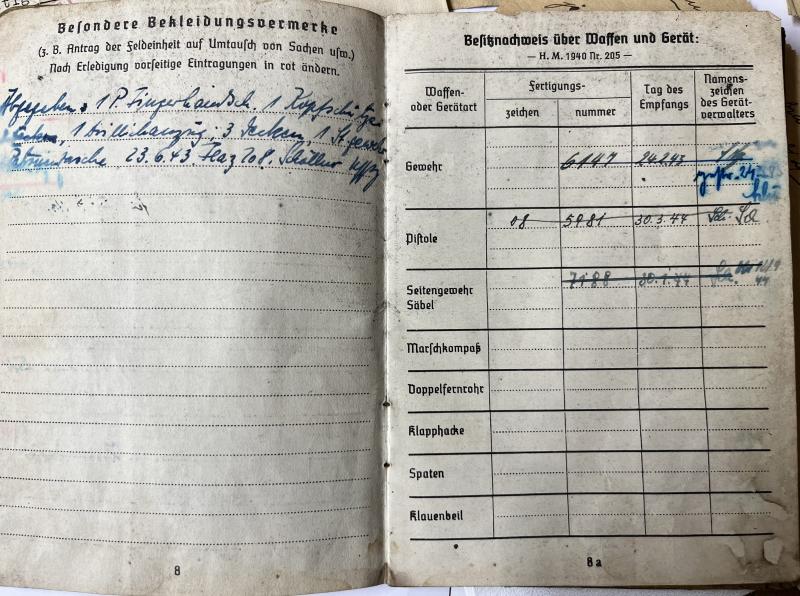 Besondere Bekleidungsvermerke
(z. B. Antrag der Feldeinheit auf Umtausch von Sachen usw.)
Nach Erledigung vorseitige Eintragungen in rot ändern.
Abgegeben: 1 P. Fingerhandsch. 1 Kopfschützer
1 Drillichanzug, 3 Decken, 1 St.
Patronentasche 23.6.43
8
Besitznachweis über Waffen und Gerät:
— H. M. 1940 Nr. 205 —
Waffen- oder Gerätart Fertigungs- Tag des Empfangs Namens- zeichen des Gerät- verwalters
zeichen nummer
Gewehr 6147 24.2.43
Pistole 08 5981 30.3.44
Seitengewehr 7188 30.1.44
Säbel
Marschkompaß
Doppelfernrohr
Klapphacke
Spaten
Klauenbeil
8a